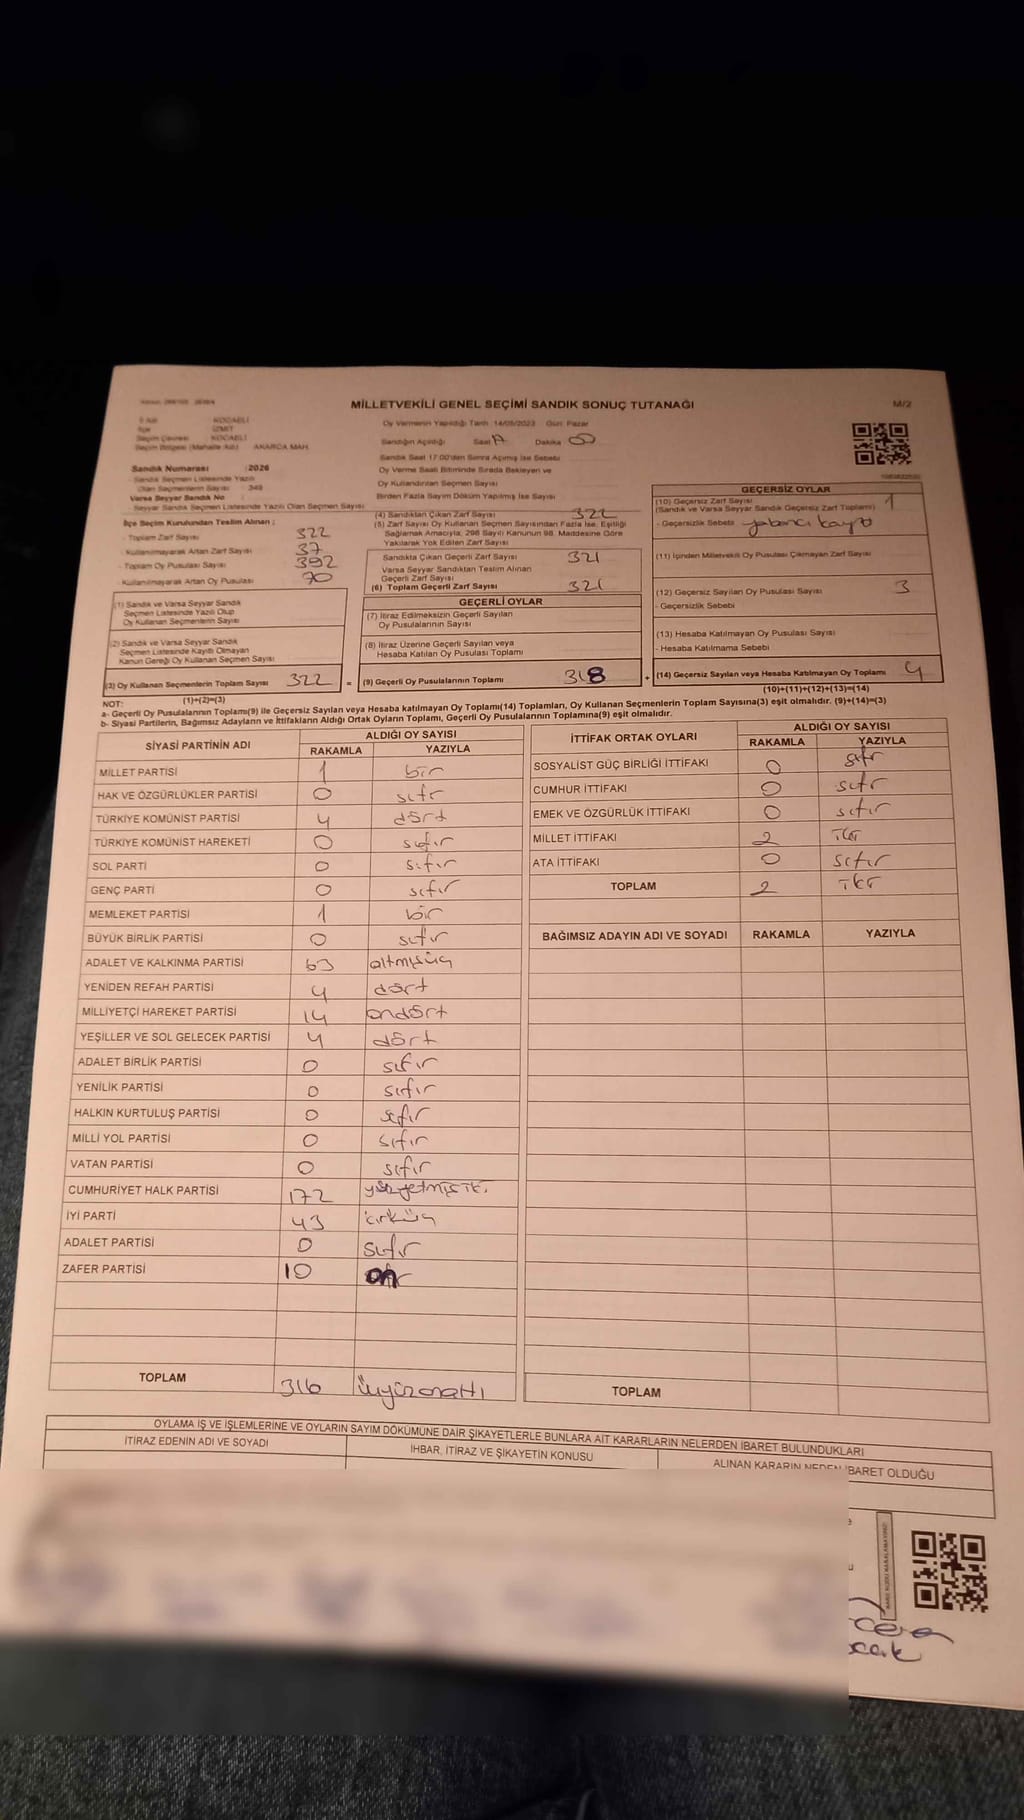 MİLLETVEKİLİ GENEL SEÇİMİ SANDIK SONUÇ TUTANAĞI
M/2
KOCAELİ
İZMİT
KOCAELİ
Seçim Bölgesi (Mahalle Adı) AKARCA MAH.
Oy Vermenin Yapıldığı Tarih 14/05/2023 Gün: Pazar
Sandığın Açıldığı Saat Dakika 00
Sandık Saat 17:00'den Sonra Açılmış İse Sebebi
Oy Verme Saati Bitiminde Sırada Bekleyen ve
Oy Kullandırılan Seçmen Sayısı
Birden Fazla Sayım Döküm Yapılmış İse Sayısı
Sandık Numarası : 2026
Sandık Seçmen Listesinde Yazılı
Olan Seçmenlerin Sayısı : 349
Varsa Seyyar Sandık No
Seyyar Sandık Seçmen Listesinde Yazılı Olan Seçmen Sayısı
İlçe Seçim Kurulundan Teslim Alınan ;
- Toplam Zarf Sayısı 322
- Kullanılmayarak Artan Zarf Sayısı 37
- Toplam Oy Pusulası Sayısı 392
- Kullanılmayarak Artan Oy Pusulası 70
(1) Sandık ve Varsa Seyyar Sandık
Seçmen Listesinde Yazılı Olup
Oy Kullanan Seçmenlerin Sayısı
(2) Sandık ve Varsa Seyyar Sandık
Seçmen Listesinde Kayıtlı Olmayan
Kanun Gereği Oy Kullanan Seçmen Sayısı
(3) Oy Kullanan Seçmenlerin Toplam Sayısı 322 =
(1)+(2)=(3)
(4) Sandıktan Çıkan Zarf Sayısı 322
(5) Zarf Sayısı Oy Kullanan Seçmen Sayısından Fazla İse, Eşitliği
Sağlamak Amacıyla, 298 Sayılı Kanunun 98. Maddesine Göre
Yakılarak Yok Edilen Zarf Sayısı
Sandıkta Çıkan Geçerli Zarf Sayısı 321
Varsa Seyyar Sandıktan Teslim Alınan
Geçerli Zarf Sayısı
(6) Toplam Geçerli Zarf Sayısı 321
GEÇERLİ OYLAR
(7) İtiraz Edilmeksizin Geçerli Sayılan
Oy Pusulalarının Sayısı
(8) İtiraz Üzerine Geçerli Sayılan veya
Hesaba Katılan Oy Pusulası Toplamı
(9) Geçerli Oy Pusulalarının Toplamı 318 +
GEÇERSİZ OYLAR
(10) Geçersiz Zarf Sayısı 1
(Sandık ve Varsa Seyyar Sandık Geçersiz Zarf Toplamı)
- Geçersizlik Sebebi yabancı
(11) İçinden Milletvekili Oy Pusulası Çıkmayan Zarf Sayısı
(12) Geçersiz Sayılan Oy Pusulası Sayısı 3
- Geçersizlik Sebebi
(13) Hesaba Katılmayan Oy Pusulası Sayısı
- Hesaba Katılmama Sebebi
(14) Geçersiz Sayılan veya Hesaba Katılmayan Oy Toplamı 4
(10)+(11)+(12)+(13)=(14)
NOT:
a- Geçerli Oy Pusulalarının Toplamı(9) ile Geçersiz Sayılan veya Hesaba katılmayan Oy Toplamı(14) Toplamları, Oy Kullanan Seçmenlerin Toplam Sayısına(3) eşit olmalıdır. (9)+(14)=(3)
b- Siyasi Partilerin, Bağımsız Adayların ve İttifakların Aldığı Ortak Oyların Toplamı, Geçerli Oy Pusulalarının Toplamına(9) eşit olmalıdır.
SİYASİ PARTİNİN ADI ALDIĞI OY SAYISI
RAKAMLA YAZIYLA
MİLLET PARTİSİ 1 bir
HAK VE ÖZGÜRLÜKLER PARTİSİ 0 sıfır
TÜRKİYE KOMÜNİST PARTİSİ 4 dört
TÜRKİYE KOMÜNİST HAREKETİ 0 sıfır
SOL PARTİ 0 sıfır
GENÇ PARTİ 0 sıfır
MEMLEKET PARTİSİ 1 bir
BÜYÜK BİRLİK PARTİSİ 0 sıfır
ADALET VE KALKINMA PARTİSİ 63 altmışüç
YENİDEN REFAH PARTİSİ 4 dört
MİLLİYETÇİ HAREKET PARTİSİ 14 ondört
YEŞİLLER VE SOL GELECEK PARTİSİ 4 dört
ADALET BİRLİK PARTİSİ 0 sıfır
YENİLİK PARTİSİ 0 sıfır
HALKIN KURTULUŞ PARTİSİ 0 sıfır
MİLLİ YOL PARTİSİ 0 sıfır
VATAN PARTİSİ 0 sıfır
CUMHURİYET HALK PARTİSİ 172
İYİ PARTİ 43 kırküç
ADALET PARTİSİ 0 sıfır
ZAFER PARTİSİ 10 on
TOPLAM 316 üçyüzonaltı
İTTİFAK ORTAK OYLARI ALDIĞI OY SAYISI
RAKAMLA YAZIYLA
SOSYALİST GÜÇ BİRLİĞİ İTTİFAKI 0 sıfır
CUMHUR İTTİFAKI 0 sıfır
EMEK VE ÖZGÜRLÜK İTTİFAKI 0 sıfır
MİLLET İTTİFAKI 2 iki
ATA İTTİFAKI 0 sıfır
TOPLAM 2 iki
BAĞIMSIZ ADAYIN ADI VE SOYADI RAKAMLA YAZIYLA
TOPLAM
OYLAMA İŞ VE İŞLEMLERİNE VE OYLARIN SAYIM DÖKÜMÜNE DAİR ŞİKAYETLERLE BUNLARA AİT KARARLARIN NELERDEN İBARET BULUNDUKLARI
İTİRAZ EDENİN ADI VE SOYADI İHBAR, İTİRAZ VE ŞİKAYETİN KONUSU ALINAN KARARIN NEDEN İBARET OLDUĞU